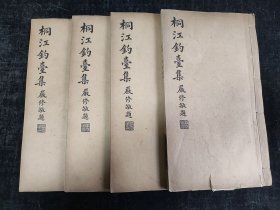 桐江釣臺集
嚴修敬題
桐江釣臺集
嚴修敬題
桐江釣臺集
嚴修敬題
桐江釣臺集
嚴修敬題